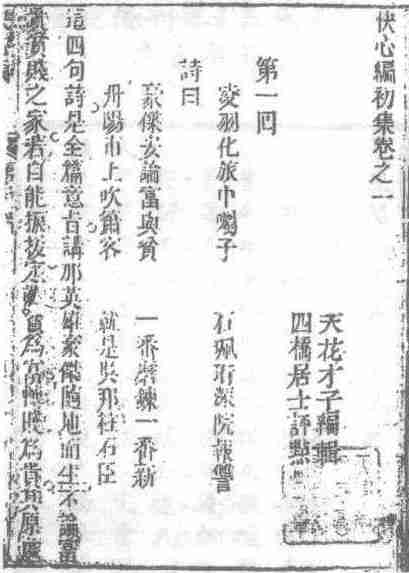 快心編初集卷之一
天花才子編輯
四橋居士評點
第一回
凌羽化旅中囑子 石珮珩深院報讐
詩曰
豪傑安論富與貧 一番磨鍊一番新
丹陽市上吹簫客 就是吳邦柱石臣
這四句詩是全篇意旨講那英雄豪傑隨地而生不論富
貴貧賤之家若自能振拔定 貧為富轉賤為貴其原